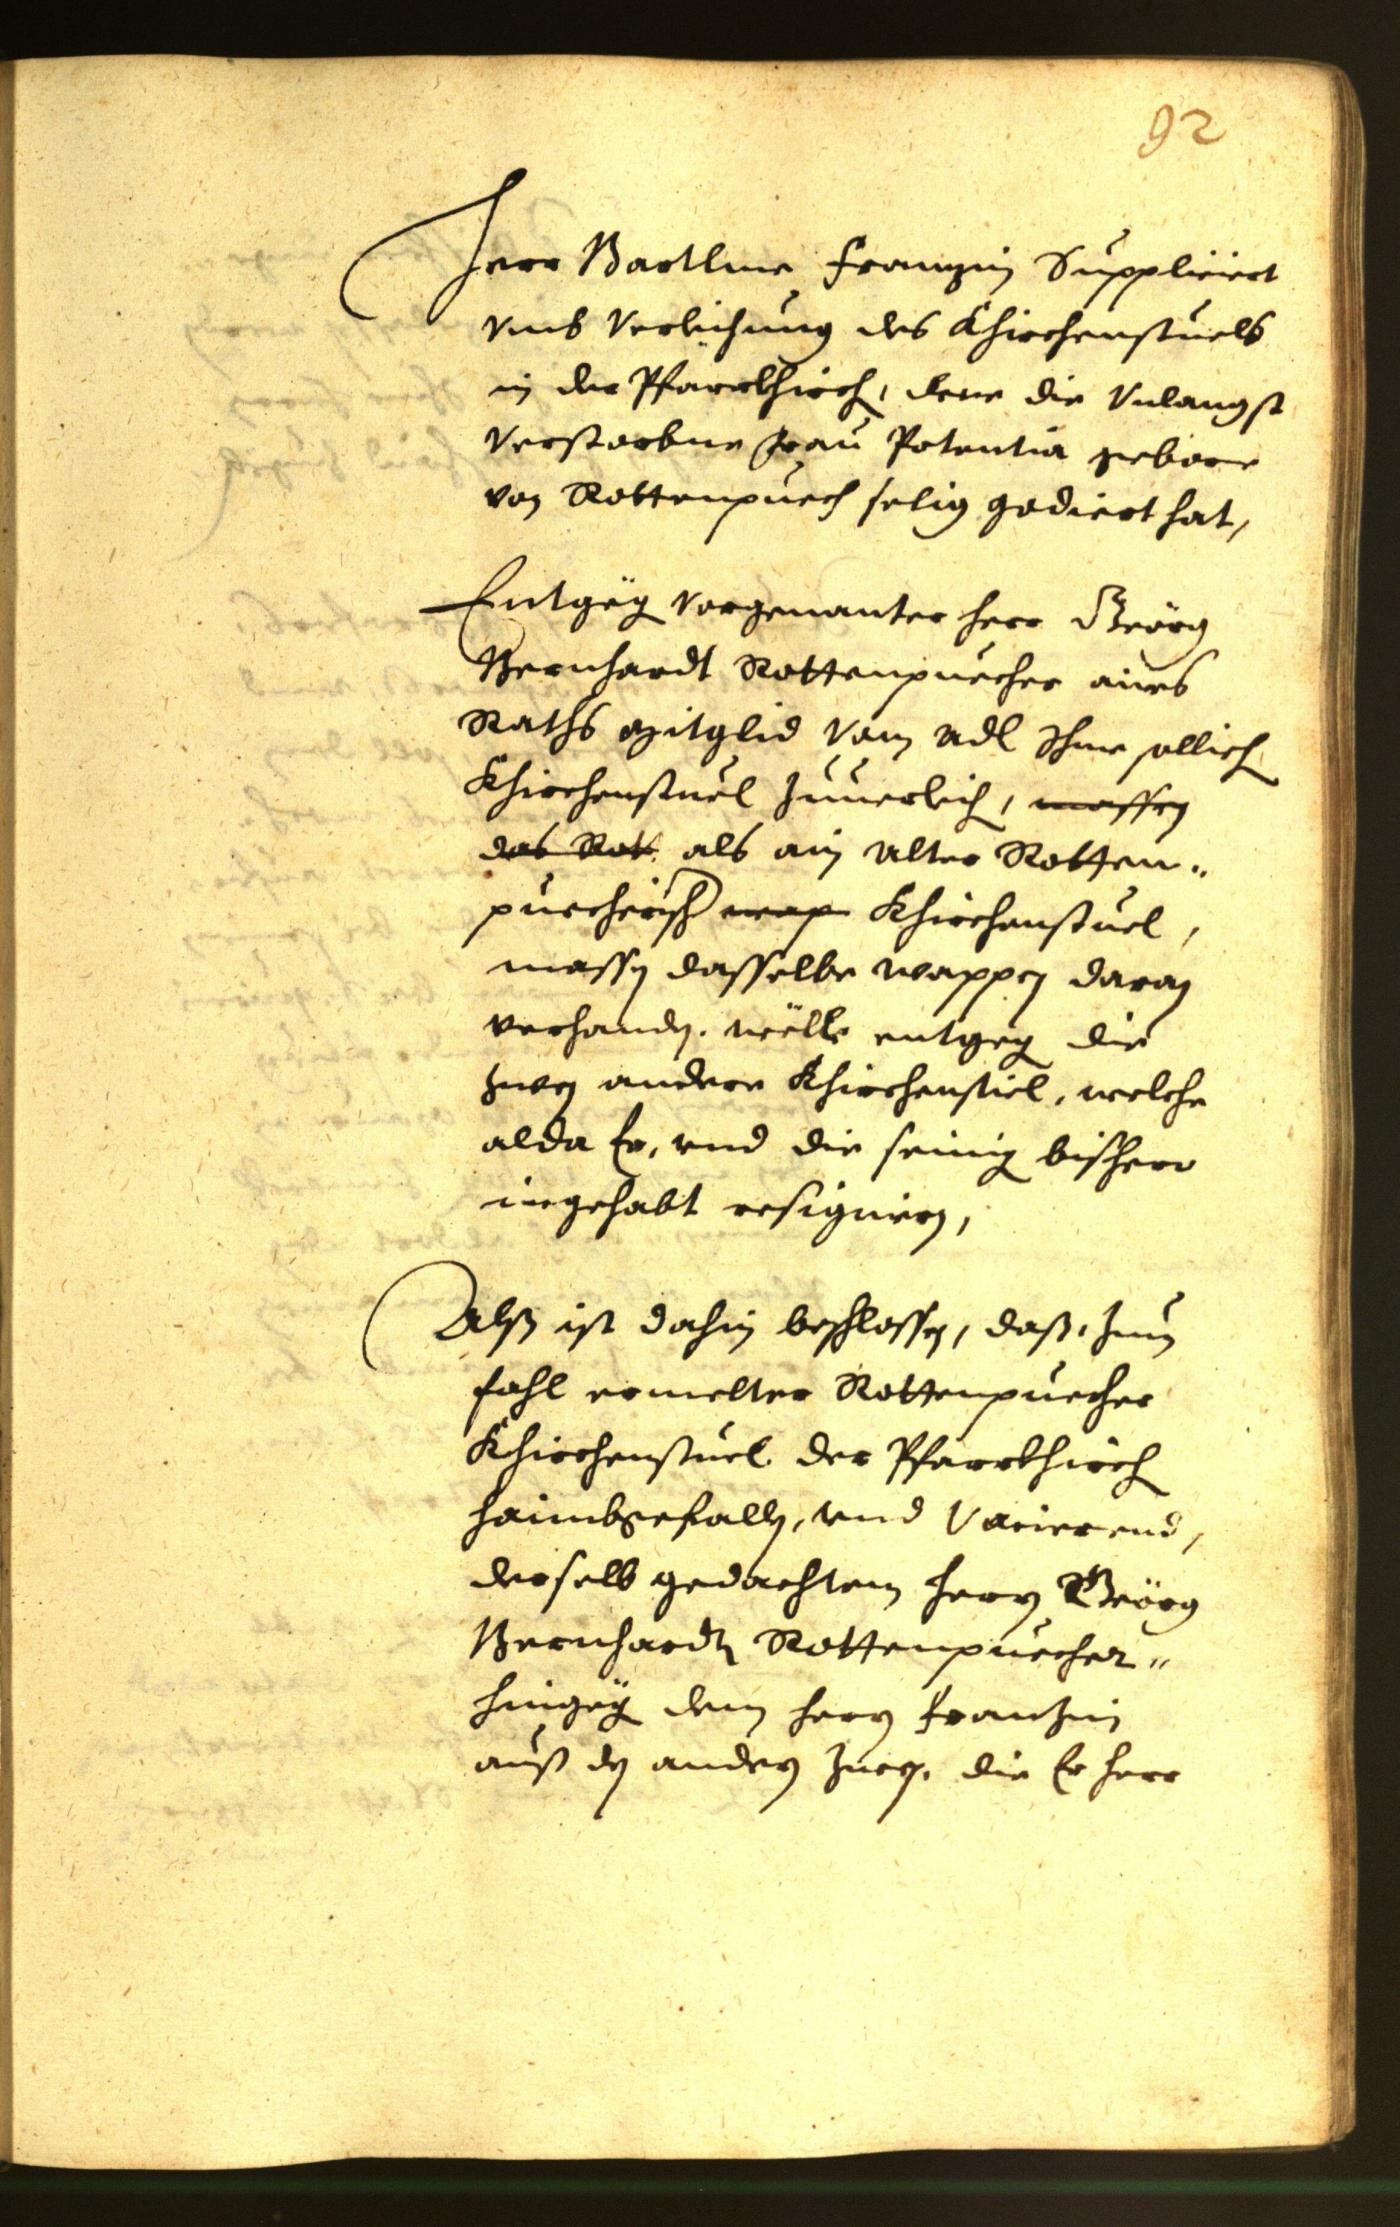 92
Herr Bartlme Franzin Suppliciert
vmb Verleichung des Khirchenstuels
in der Pfarrkhirch, dene die Vnlangst
Verstorbne Frau Potentia geborne
von Rottenpuech selig gediert hat,
Entgög vorgenanter herr Geörg
Bernhardt Rottenpuecher aines
Raths Mitglid Vom Adl Ihme sollich
Khirchenstuel zuuerleich, massen
das Rot als ain alter Rotten„
puecherisch wap Khirchenstuel,
massen dasselbe wappen daran
verhanden. welle entgeg die
zwen andere Khirchenstiel, welche
alda Er, vnd die seinig bißhero
ingehabt resignirn,
Alß ist dahin beschlossen, daß, zum
fahl ermelter Rottenpuecher
Khirchenstuel der Pfarrkhirch
haimbgefallen, vnd Vacierend,
derselb gedachtem herrn Geörg
Bernhardt Rottenpuecher„
hingög dem herrn Franzin
auß den andern zween, die Er herr